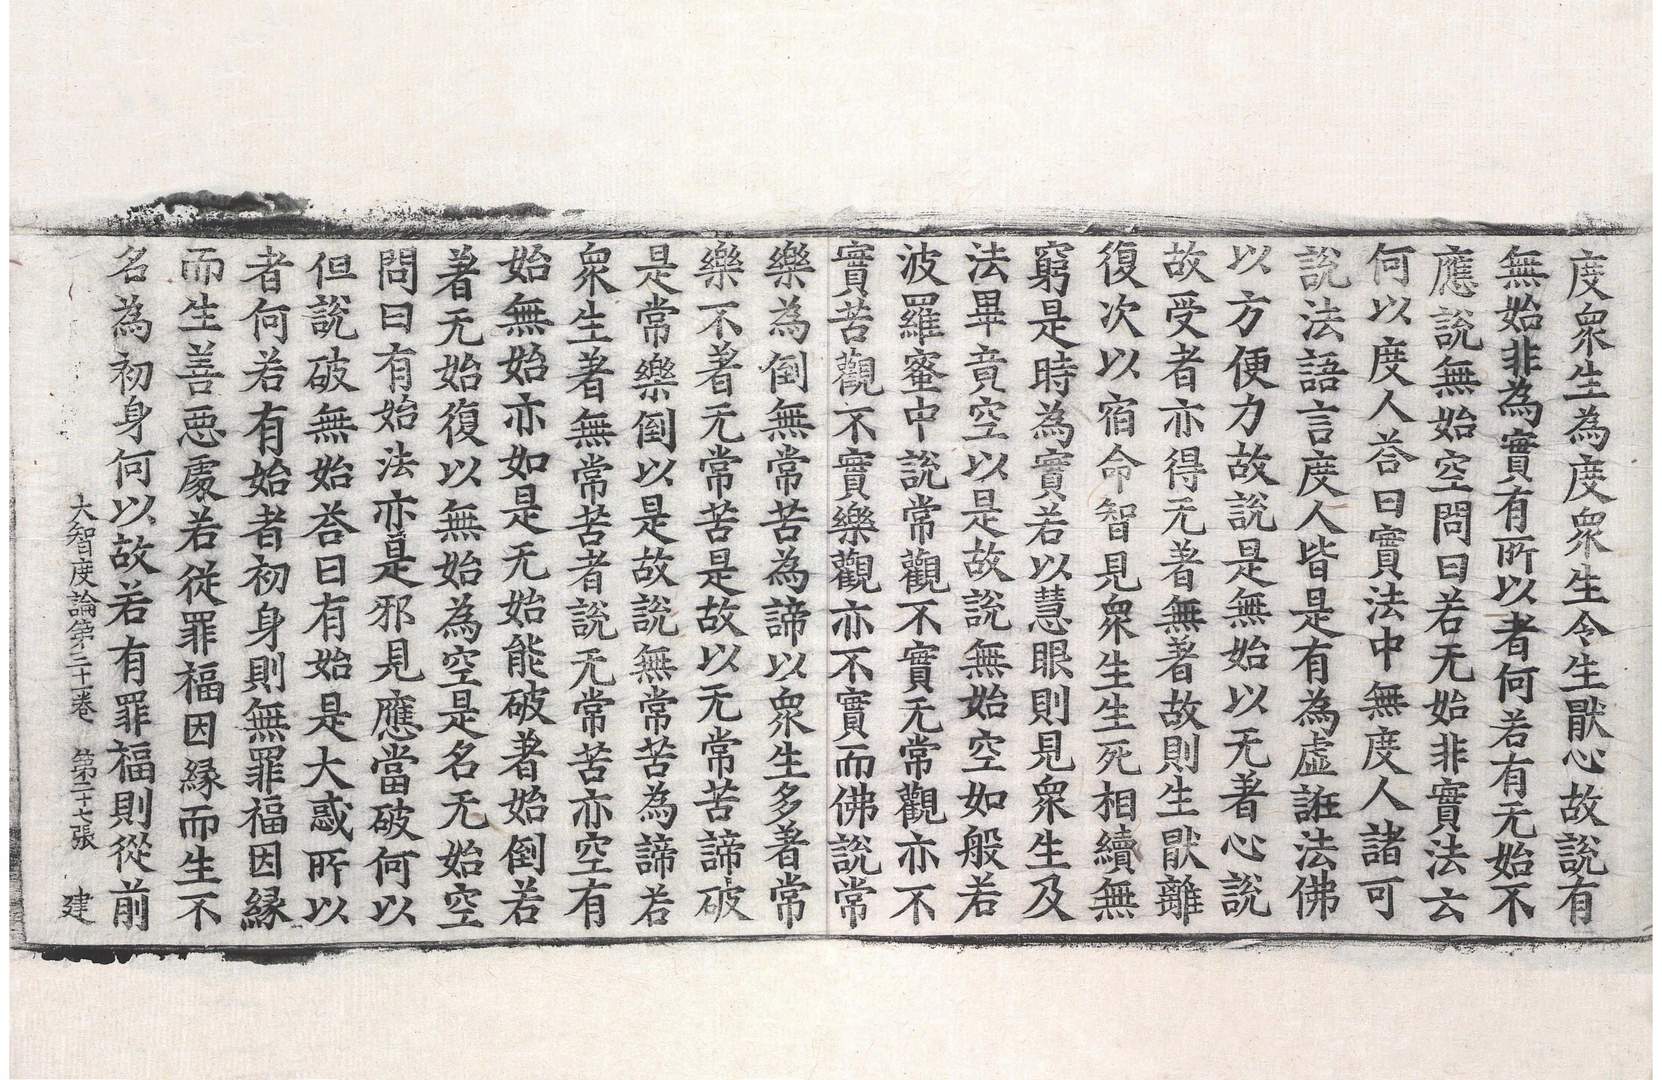 度衆生為度衆生令生猒心故說有
無始非為實有所以者何若有无始不
應說無始空問曰若无始非實法云
何以度人荅曰實法中無度人諸可
說法語言度人皆是有為虛誑法佛
以方便力故說是無始以无著心說
故受者亦得无著無著故則生猒離
復次以宿命智見衆生生死相續無
窮是時為實若以慧眼則見衆生及
法畢竟空以是故說無始空如般若
波羅蜜中說常觀不實无常觀亦不
實苦觀不實樂觀亦不實而佛說常
樂為倒無常苦為諦以衆生多著常
樂不著无常苦是故以无常苦諦破
是常樂倒以是故說無常苦為諦若
衆生著無常苦者說无常苦亦空有
始無始亦如是无始能破著始倒若
著无始復以無始為空是名无始空
問曰有始法亦是邪見應當破何以
但說破無始荅曰有始是大惑所以
者何若有始者初身則無罪福因緣
而生善惡處若從罪福因緣而生不
名為初身何以故若有罪福則從前
大智度論第三十卷　第二十七張　建